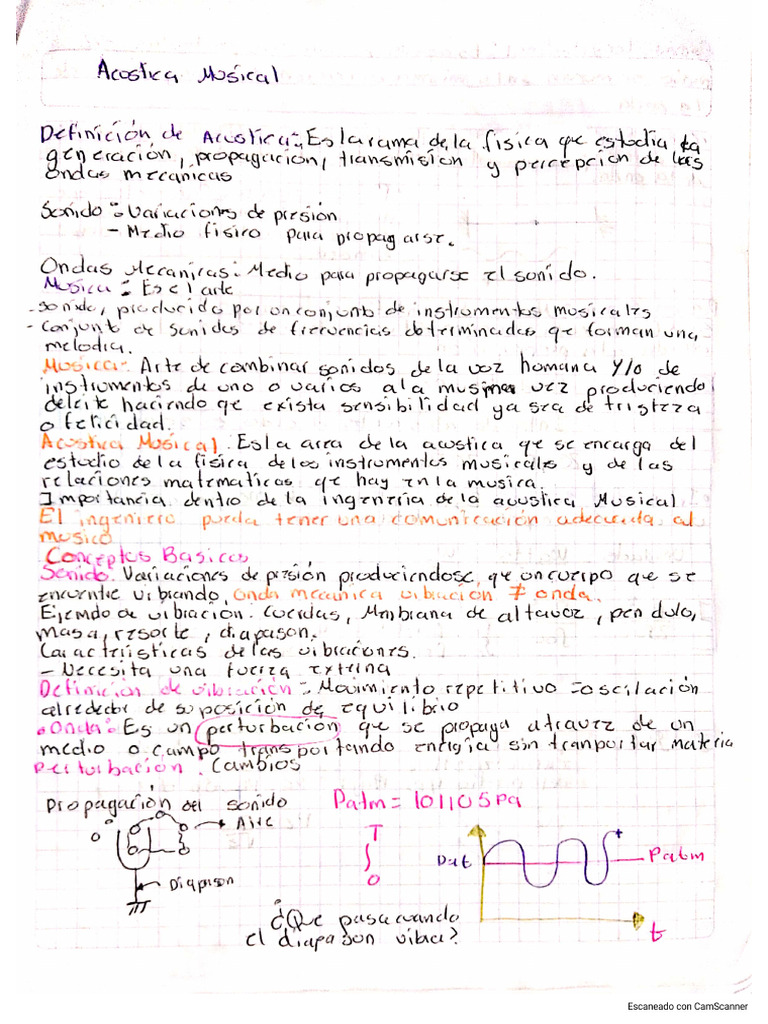 Acostica Musical
Definición de Acustica: Es la rama de la fisica que estudia la
generación, propagación, transmision y percepcion de las
ondas mecanicas
Sonido: Variaciones de presión
- Medio fisico para propagarse.
Ondas Mecanicas: Medio para propagarse el sonido.
Musica: Es el arte
- sonido, producido por un conjunto de instrumentos musicales
- Conjunto de sonidos de frecuencias determinadas que forman una
melodia.
Musica: Arte de combinar sonidos de la voz humana y/o de
instrumentos de uno o varios a la musma vez produciendo
deleite haciendo que exista sensibilidad ya sea de tristeza
o felicidad.
Acostica Musical: Es la area de la acostica que se encarga del
estudio de la fisica de los instrumentos musicales y de las
relaciones matematicas que hay en la musica.
Importancia dentro de la ingenieria de la acustica Musical
El ingeniero pueda tener una comunicación adecuada al
musico
Conceptos Basicos
Sonido: Variaciones de presión produciendose, que un cuerpo que se
encuentre vibrando, onda mecanica vibración ≠ onda.
Ejemplo de vibración: Cuerdas, Membrana de altavoz, pendulo,
masa, resorte, diapason.
Caracteristicas de las vibraciones.
- Necesita una fuerza externa
Definicion de vibración: Movimiento repetitivo = oscilación
alrededor de su posición de equilibrio
Onda: Es un perturbacion que se propaga atravez de un
medio o campo transportando energia sin tranportar materia
Perturbación: Cambios
Propagación del sonido
Patm = 101105 pa
Aire
Diapason
T
0
+
Patm
t
¿Que pasa cuando
el diapason vibra?
Escaneado con CamScanner